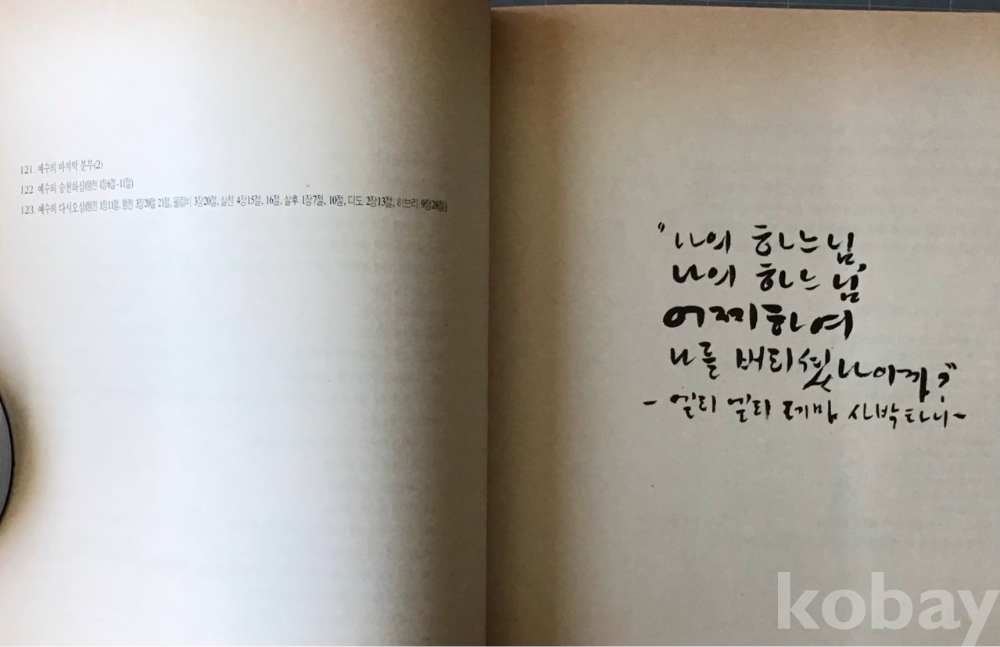 121. 예수의 마지막 분부(2)
122. 예수의 승천하심(행전 1장6절~11절)
123. 예수의 다시오심(행전 1장11절, 행전 3장20절 21절, 빌립비 3장20절, 살전 4장15절, 16절, 살후 1장7절, 10절, 디도 2장13절, 히브리 9장28절)
"나의 하느님,
나의 하느님,
어찌하여
나를 버리셨나이까?"
- 엘리 엘리 레마 사박타니 -
kobay